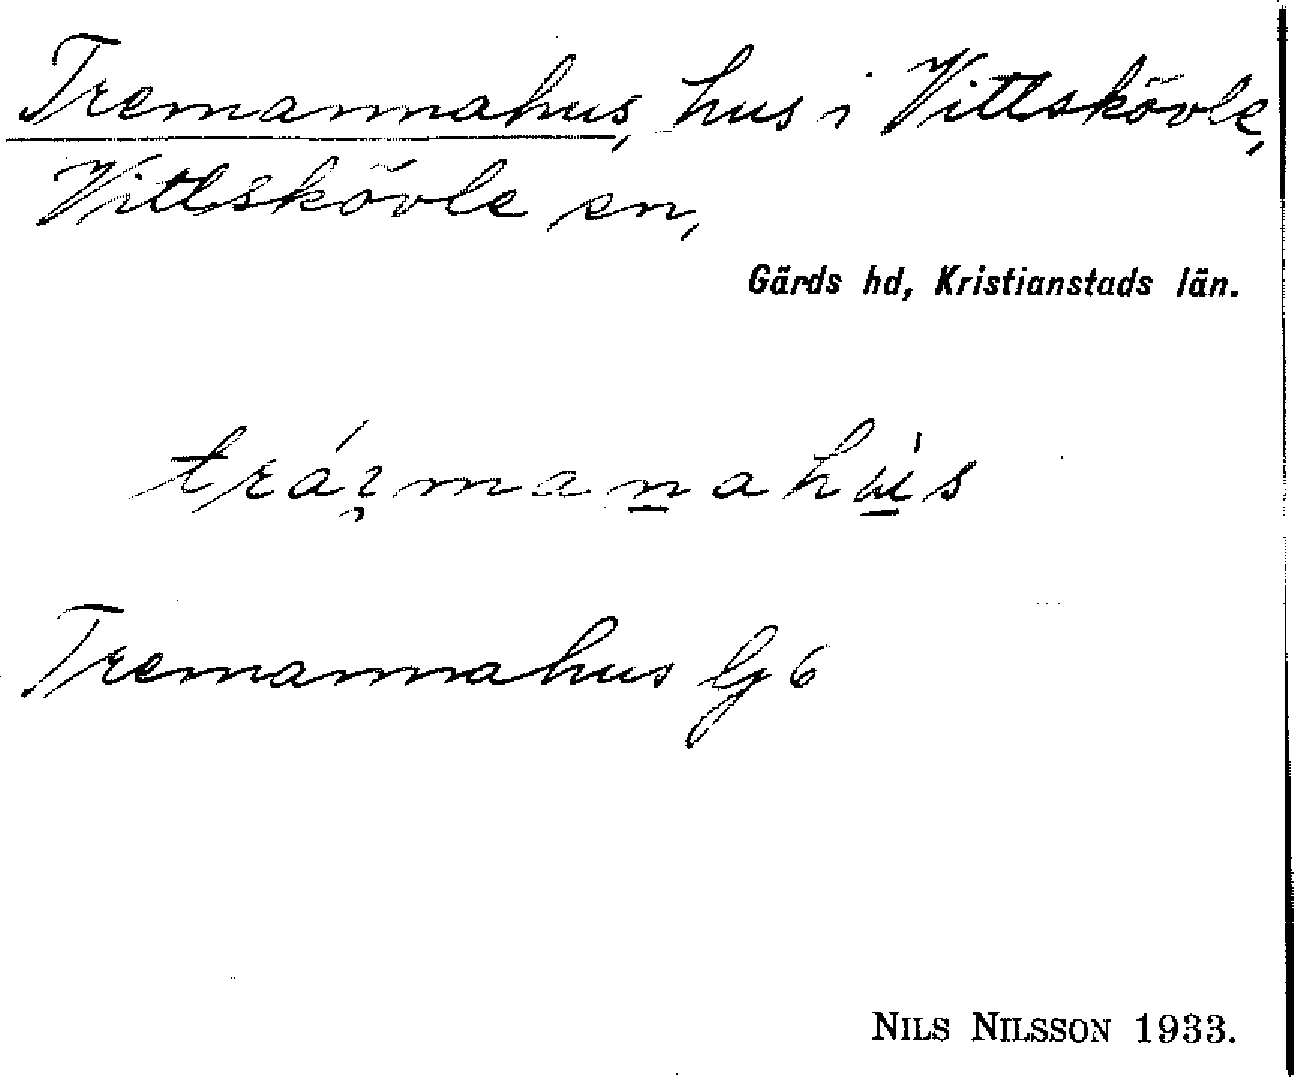 Tremannahus, hus i Vittskövle,
Vittskövle sn,
Gärds hd, Kristianstads län.
tráꝛmanahús
Tremannahus Gg 6
NILS NILSSON 1933.